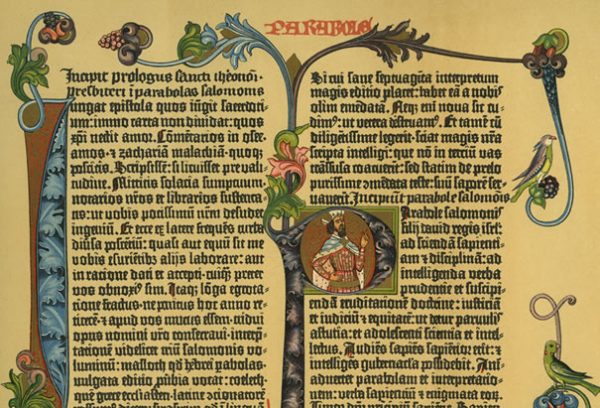 PARABOLE
Incipit prologus sancti iheroni.
presbiteri ī parabolas salomonis
Iungat epistola quos iūgit sacerdoti-
um: immo carta non dividat: quos
xpi nectit amor. Cōmētarios in osee.
amos. ⁊ zachariā malachiā. quoqꝫ
poscitis. Scripsissē: si licuisset pre vali-
tudine. Mittitis solacia sumptuum.
notarios nr̄os et librarios sustenta-
tis: ut vobis potissimū nr̄m desudet
ingeniū. Et ecce ex latere frequēs turba
diūsa poscētiū: quasi aut equū sit me
vobis esuriētibꝫ aliis laborare: aut
in ratione dati et accepti. cuiqꝫ preter
vos obnoxiꝰ sim. Itaqꝫ lōga egrota-
tione fractus. ne penitus hoc anno re-
ticerē. ⁊ apud vos mutus essem. tridui
opus nomini vr̄o consecraui. interp̄-
tationē videlicet triū salomonis vo-
luminū: masloth qd̄ hebrei ꝑabolas.
vulgata editio ꝓūbia vocat: coeleth.
quē grece eccl̓iasten. latine cōcionatorē
Si cui sane septuaginta interpretum
magis editio placet: habet eā a nobis
olim emēdatā. Neqꝫ em̄ nova sic cu-
dim⁹: ut vetera destruam⁹. Et tamē cū
diligētissime legerit. sciat magis nr̄a
scripta intelligi: que nō in terciū vas
trāsfusa coacuerīt: sed statim de prelo
purissime ꝯmēdata teste: suū saporē ser-
vauerīt. Incipiunt parabole salomonis
Parabole salomonis
filii david regis isrl̓:
ad sciendā sapienti-
am ⁊ disciplinā: ad
intelligenda verba
prudentie et suscipi-
endā eruditionē doctrine: iusticiā
et iudiciū ⁊ equitatē: ut detur parvulis
astutia: et adolescenti scientia et intel-
lectus. Audiēs sapiēs sapiētior erit: ⁊
intelligēs gubernacla possidebit. Ani-
advertet parabolam et interpretatio-
nem: verba sapientiū ⁊ enigmata eoꝝ.